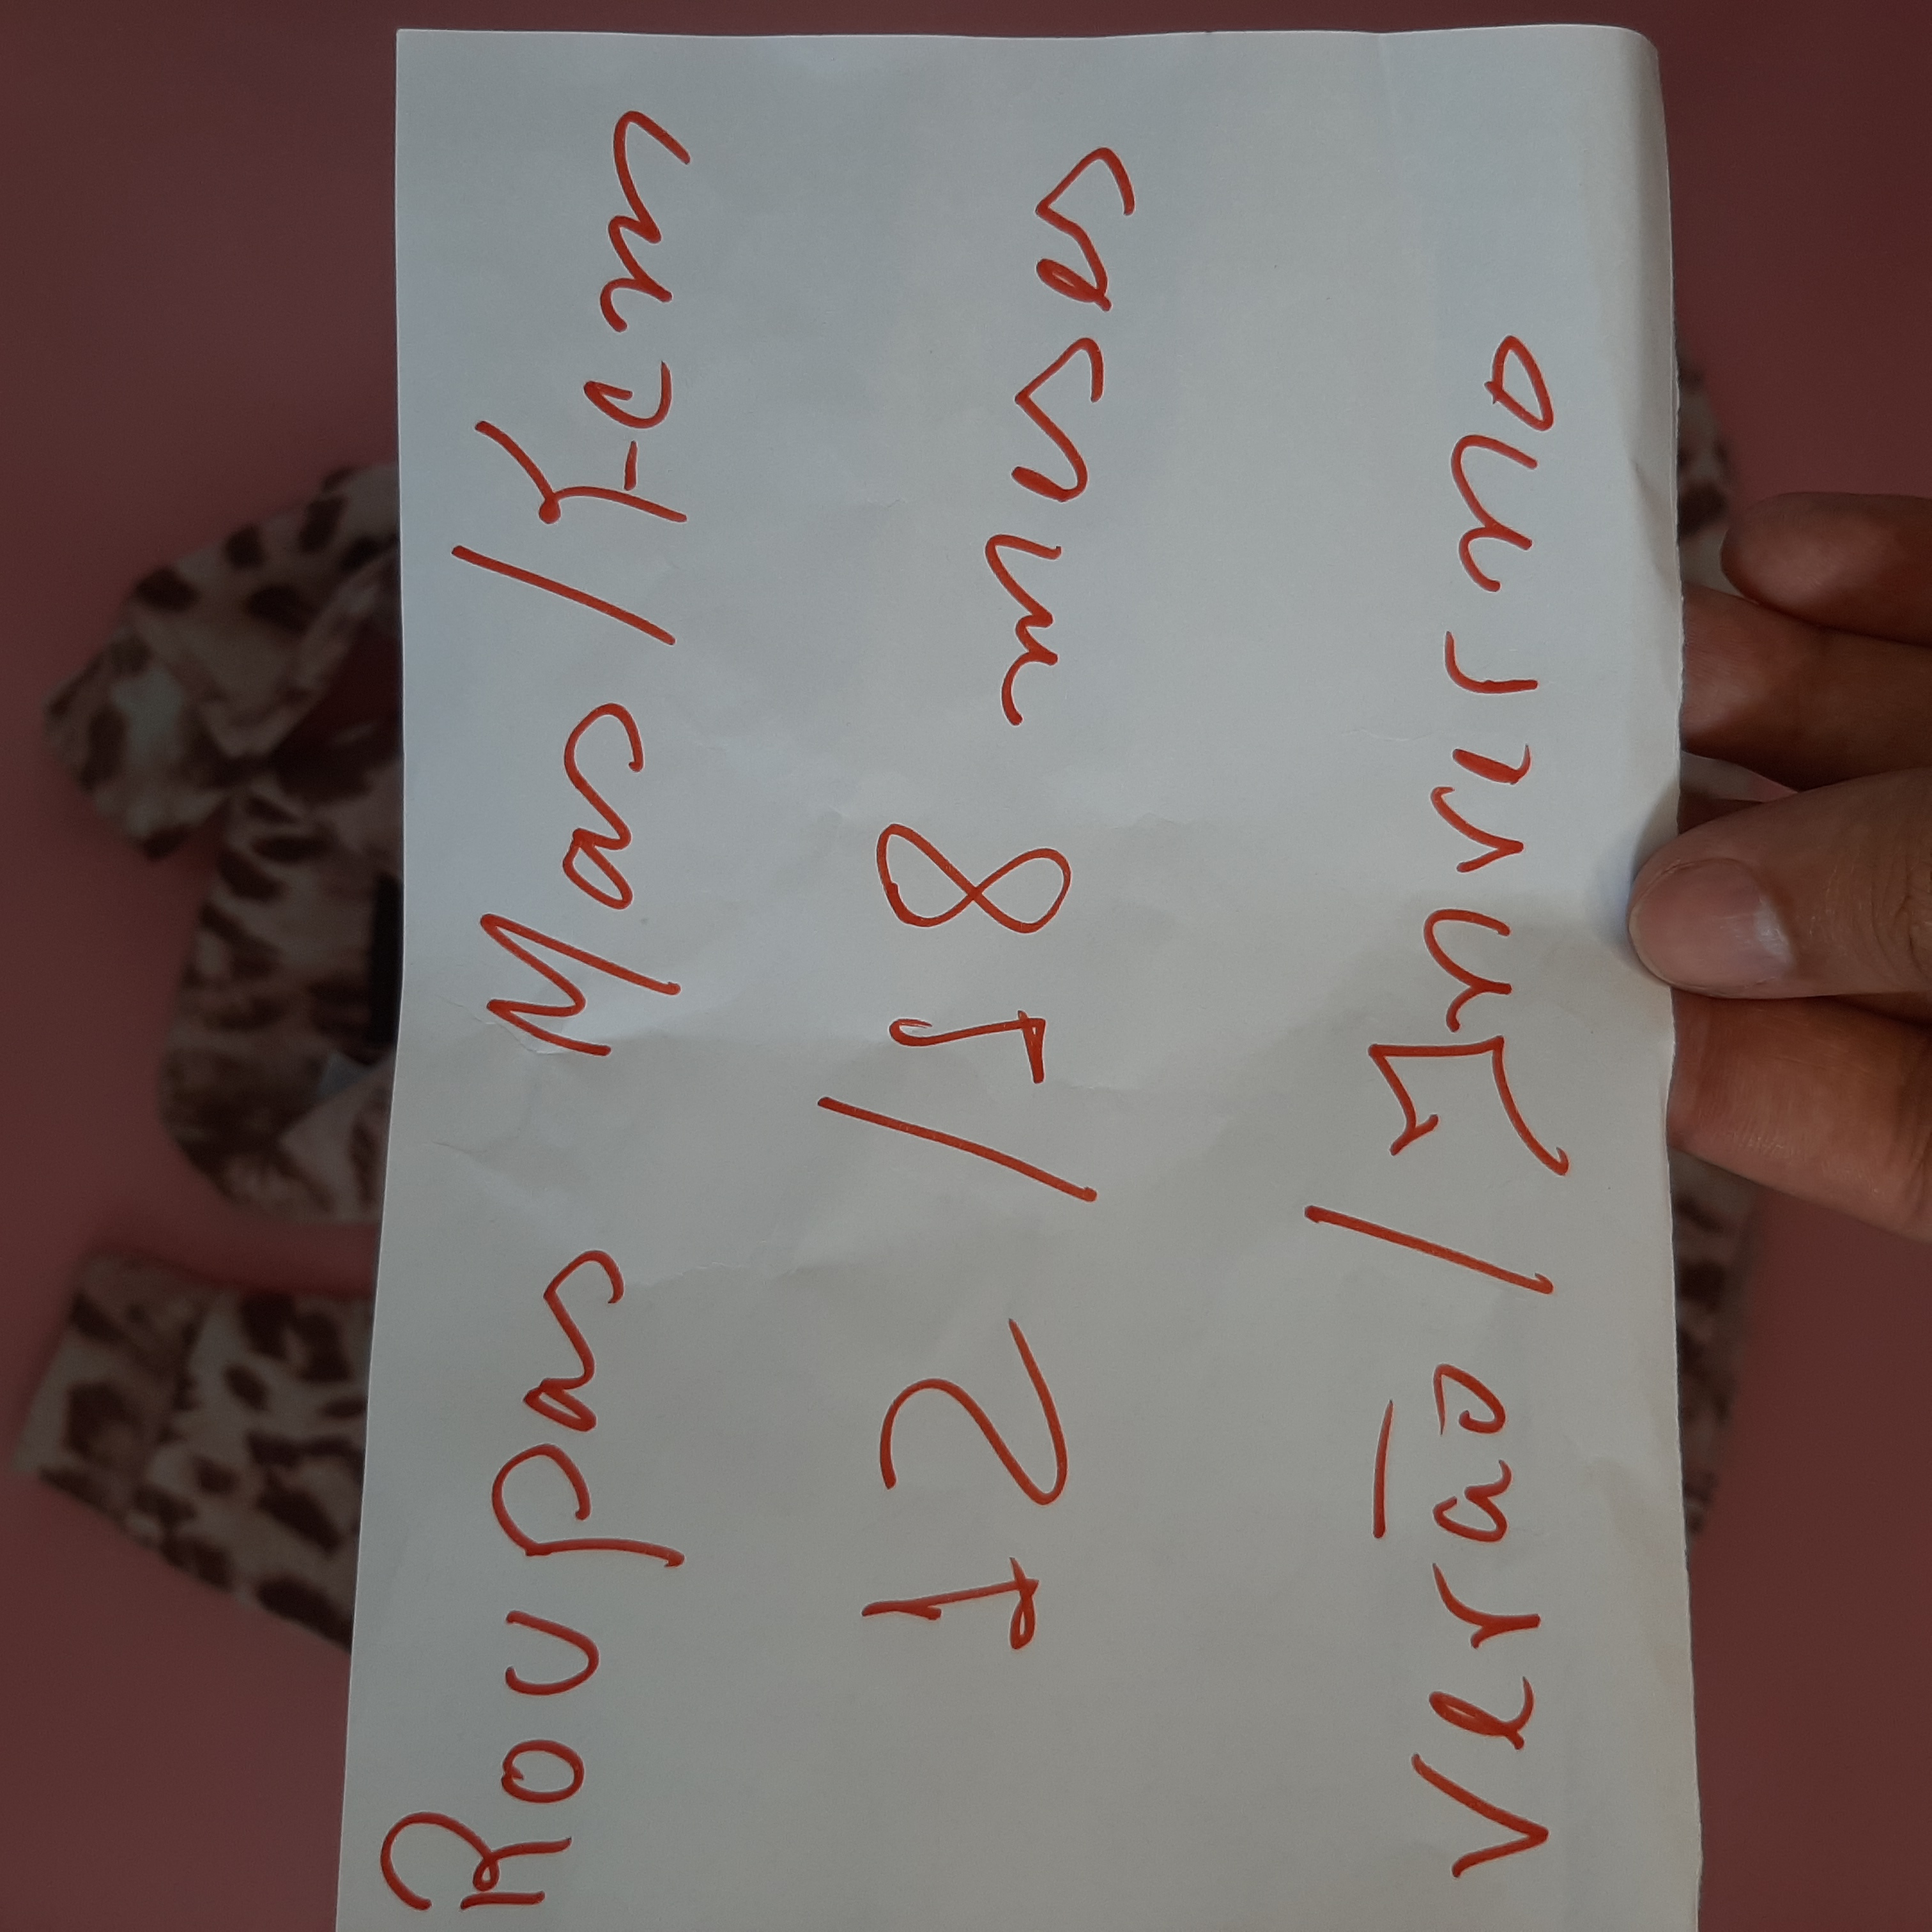 Roupas Mas/Fem
12/18 meses
verão/Inverno